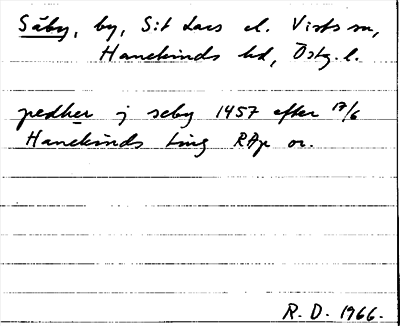 Säby, by, S:t Lars el. Vists sn,
Hanekinds hd, Östg. l.
pedher j seby 1457 efter 17/6
Hanekinds ting RAp or.
R. D. 1966.